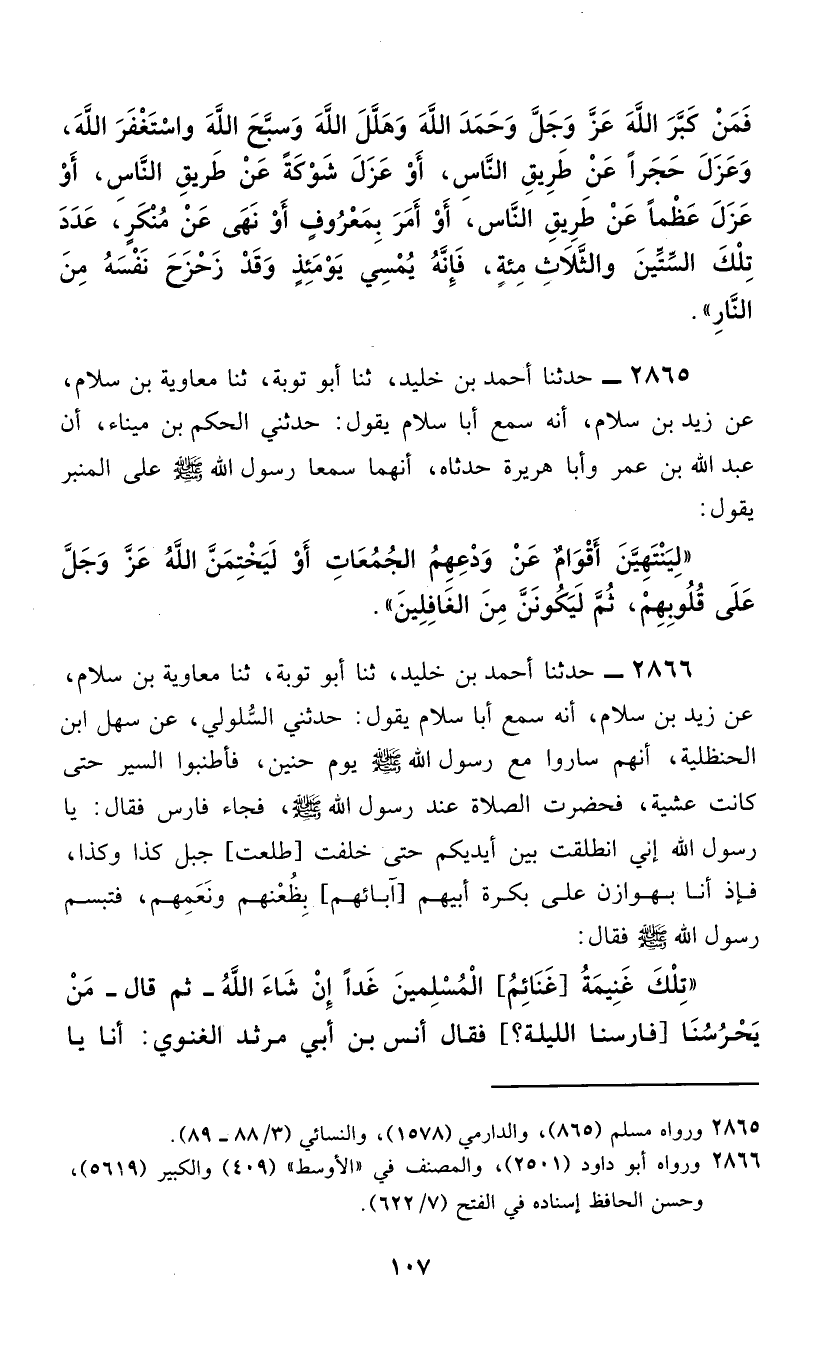 فَمَنْ كَبَّرَ اللَّهَ عَزَّ وَجَلَّ وَحَمَدَ اللَّهَ وَهَلَّلَ اللَّهَ وَسبَّحَ اللَّهَ واسْتَغْفَرَ اللَّهَ،
وَعَزَلَ حَجَراً عَنْ طَرِيقِ النَّاسِ، أَوْ عَزَلَ شَوْكَةً عَنْ طَريقِ النَّاسِ، أَوْ
عَزَلَ عَظْماً عَنْ طَرِيقِ النَّاس، أَوْ أَمَرَ بِمَعْرُوفٍ أَوْ نَهَى عَنْ مُنْكَرٍ، عَدَدَ
تِلْكَ السِّتِّينَ والثَّلَاثِ مِئةٍ، فَإِنَّهُ يُمْسِي يَوْمَئِذٍ وَقَدْ زَحْزَحَ نَفْسَهُ مِنَ
النَّارِ».
٢٨٦٥ ــ حدثنا أحمد بن خليد، ثنا أبو توبة، ثنا معاوية بن سلام،
عن زيد بن سلام، أنه سمع أبا سلام يقول: حدثني الحكم بن ميناء، أن
عبد الله بن عمر وأبا هريرة حدثاه، أنهما سمعا رسول الله ﷺ على المنبر
يقول:
«لِيَنْتَهِيَّنَ أَقْوَامٌ عَنْ وَدْعِهِمُ الجُمُعَاتِ أَوْ لَيَخْتِمَنَّ اللَّهُ عَزَّ وَجَلَّ
عَلَى قُلُوبِهِمْ، ثُمَّ لَيَكُونَنَّ مِنَ الغَافِلِينَ».
٢٨٦٦ ــ حدثنا أحمد بن خليد، ثنا أبو توبة، ثنا معاوية بن سلام،
عن زيد بن سلام، أنه سمع أبا سلام يقول: حدثني السُّلولي، عن سهل ابن
الحنظلية، أنهم ساروا مع رسول الله ﷺ يوم حنين، فأطنبوا السير حتى
كانت عشية، فحضرت الصلاة عند رسول الله ﷺ، فجاء فارس فقال: يا
رسول الله إني انطلقت بين أيديكم حتى خلفت [طلعت] جبل كذا وكذا،
فـإذ أنـا بـهـوازن علـى بكـرة أبيهـم [آبـائهـم] بِظُعْنهـم ونَعَمِهـم، فتبسـم
رسول الله ﷺ فقال:
«تِلْكَ غَنِيمَةُ [غَنَائِمُ] الْمُسْلِمينَ غَداً إنْ شَاءَ اللَّهُ ـ ثم قال ـ مَنْ
يَحْرُسُنَا [فارسنا الليلة؟] فقال أنس بن أبي مرثد الغنوي: أنا يا
٢٨٦٥ ورواه مسلم (٨٦٥)، والدارمي (١٥٧٨)، والنسائي (٣/ ٨٨ ـ ٨٩).
٢٨٦٦ ورواه أبو داود (٢٥٠١)، والمصنف في «الأوسط» (٤٠٩) والكبير (٥٦١٩)،
وحسن الحافظ إسناده في الفتح (٧/ ٦٢٢).
١٠٧